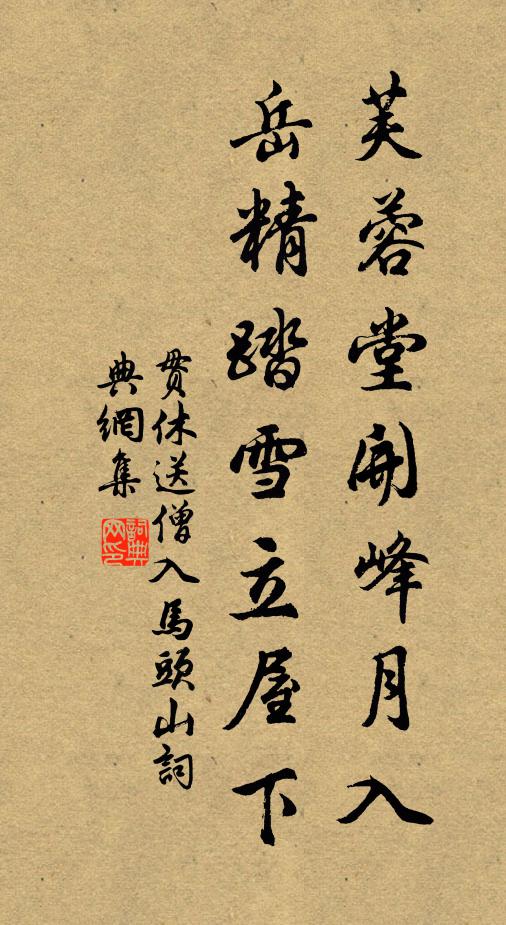 芙蓉堂開峰月入
岳精踏雪立屋下
貫休送僧入馬頭山詞
典網集
詞典网印